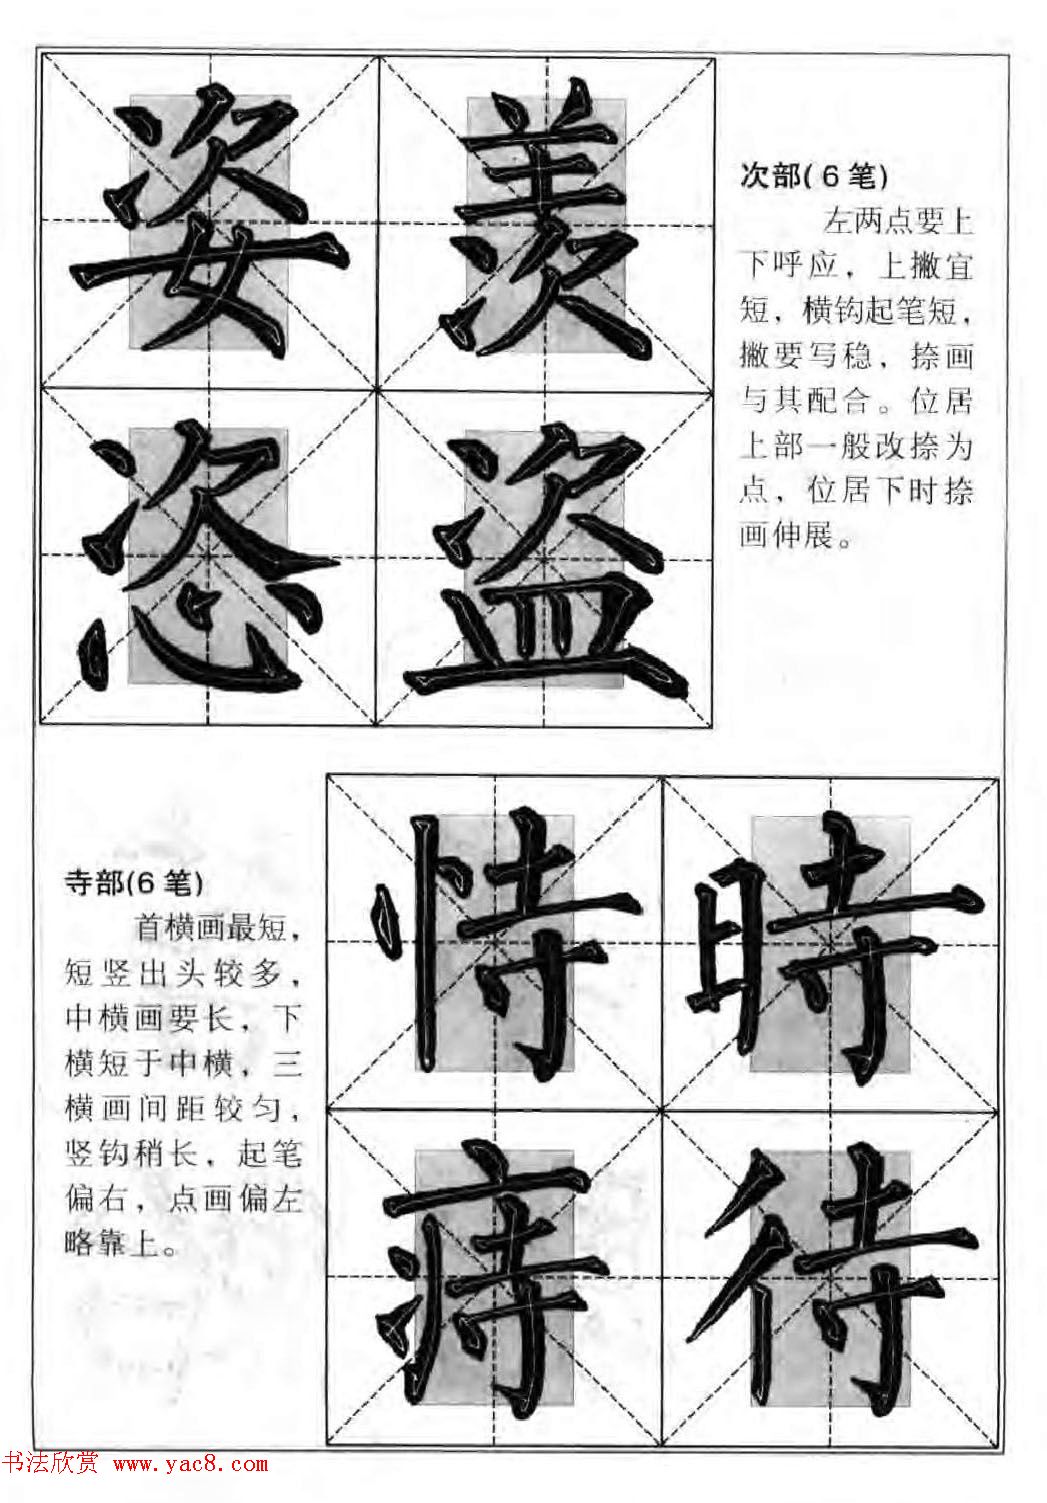 姿羡
恣盗
次部(6笔)
左两点要上
下呼应，上撇宜
短，横钩起笔短，
撇要写稳，捺画
与其配合。位居
上部一般改捺为
点，位居下时捺
画伸展。
寺部(6笔)
首横画最短，
短竖出头较多，
中横画要长，下
横短于中横，三
横画间距较匀，
竖钩稍长，起笔
偏右，点画偏左
略靠上。
恃時
痔待
书法欣赏 www.yac8.com